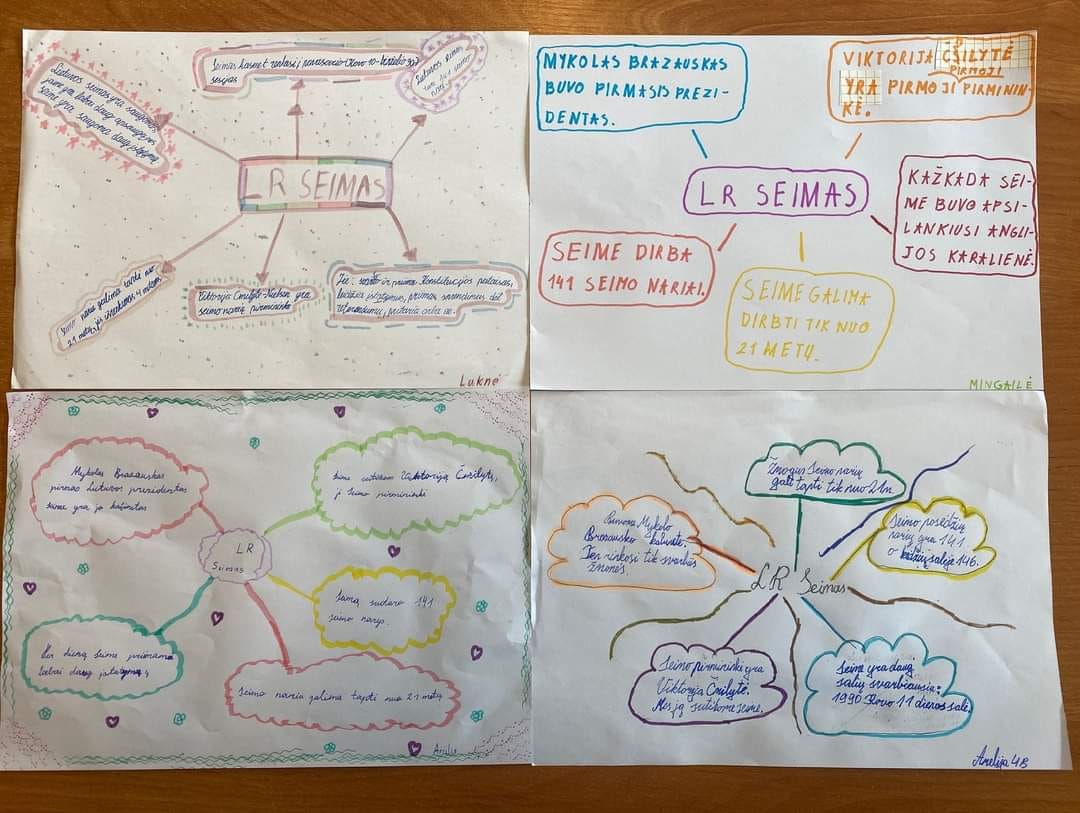 Seimas kasmet renkasi į pavasario Kovo 10-birželio 30
sesijas
Lietuvos seimas
turi 141 seimo
narį
Lietuvos seimas yra saugomas
jame yra labai daug apsaugos nes
seime yra saugoma daug įstatymų
LR SEIMAS
Seimo nariu galima tapti nuo
21 metų, jis išrenkamas 4 metams.
Viktorija Čmilytė-Nielsen yra
seimo narių pirmininkė
ir priima Konstitucijos pataisas,
leidžia įstatymus, priima sprendimus dėl
referendumų, pritaria arba ne.
Luknė
MYKOLAS BRAZAUSKAS
BUVO PIRMASIS PREZI-
DENTAS.
VIKTORIJA ČSILYTĖ
PIRMOJI
YRA PIRMOJI PIRMININ-
KĖ.
LR SEIMAS
KAŽKADA SEI-
ME BUVO APSI-
LANKIUSI ANGLI-
JOS KARALIENĖ.
SEIME DIRBA
141 SEIMO NARIAI.
SEIME GALIMA
DIRBTI TIK NUO
21 METŲ.
MINGAILĖ
Mykolas Brazauskas
pirmas Lietuvos prezidentas
seime yra jo kabinetas
Seime sutikom Viktoriją Čmilytę,
ji Seimo pirmininkė
LR
Seimas
Seimą sudaro 141
seimo narys.
Per dieną seime priimama
labai daug įstatymų
Seimo nariu galima tapti nuo 21 metų
Žmogus Seimo nariu
gali tapti tik nuo 21m.
Buvome Mykolo
Brazausko kabinete.
Ten rinkosi tik svarbūs
žmonės.
Seimo posėdžių
narių yra 141
o kėdžių salėje 146.
LR Seimas
Seimo pirmininkė yra
Viktorija Čmilytė.
Mes ją sutikome seime.
Seime yra daug
salių svarbiausia:
1990 Kovo 11 dienos salė.
Amelija 4B